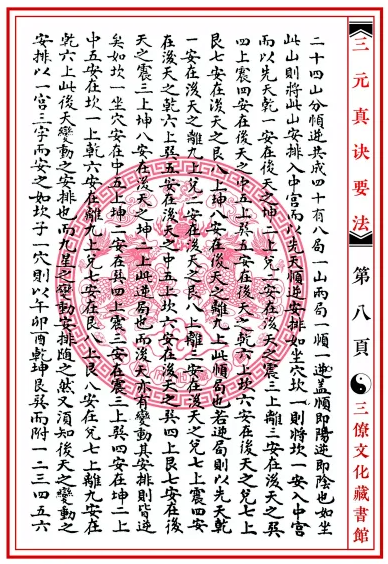 三元真诀要法
第八頁
三僚文化藏書館
二十四山分順逆共成四十有八局一山兩局一順一逆蓋順即陽逆即陰也如坐
此山則將此山安排入中宮而以先天順逆安排如坐穴坎一則將坎一安入中宮
而以先天乾一安在後天之坤二上兌二安在後天之震三上離三安在後天之巽
四上震四安在後天之中五上巽五安在後天之乾六上坎六安在後天之兌七上
艮七安在後天之艮八上坤八安在後天之離九上此順局也若逆局則以先天乾
一安在後天之離九上兌二安在後天之艮八上離三安在後天之兌七上震四安
在後天之乾六上巽五安在後天之中五上坎六安在後天之巽四上艮七安在後
天之震三上坤八安在後天之坤二上此逆局也而後天亦有變動其安排則皆逆
矣如坎一坐穴安在中五上坤二安在巽四上震三安在震三上巽四安在坤二上
中五安在坎一上乾六安在離九上兌七安在艮八上艮八安在兌七上離九安在
乾六上此後天變動之安排也而九星之變動安排随之然又須知後天之變動之
安排以一宮三字而安之如坎子一穴則以午卯酉乾坤艮巽而附一二三四五六